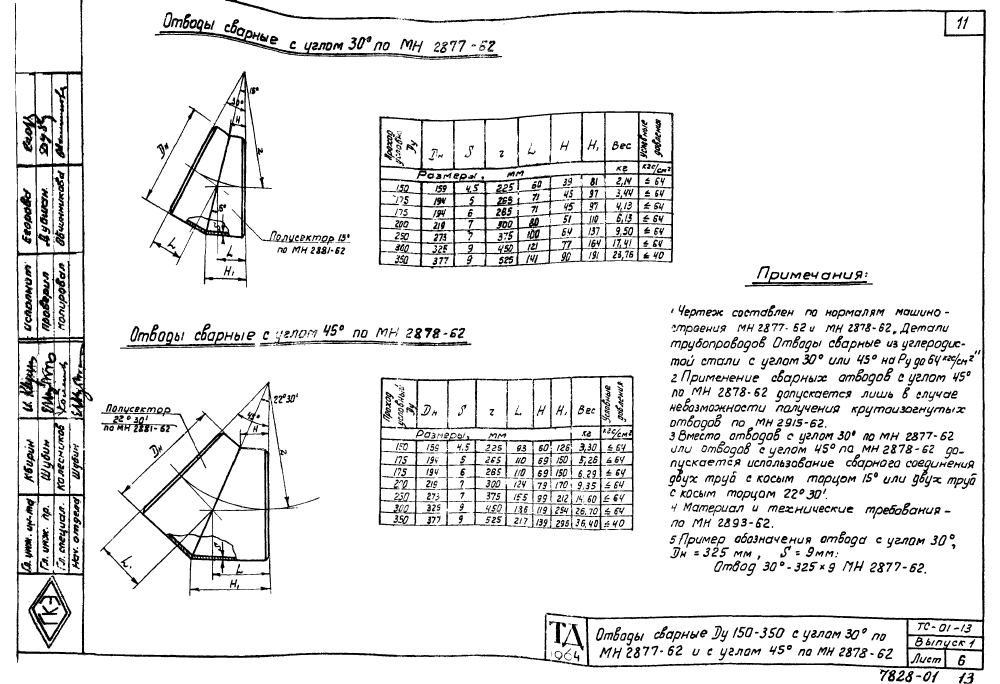 11
Отводы сварные с углом 30° по МН 2877-62
30°
15°
H
Dн
r
L
L
H₁
S
Полусектор 15°
по МН 2881-62
Проход условн. Dу | Dн | S | r | L | H | H₁ | Вес | Условные давления
Размеры, мм | кг | кгс/см²
150 | 159 | 4,5 | 225 | 60 | 39 | 81 | 2,14 | ≤ 64
175 | 194 | 5 | 265 | 71 | 45 | 97 | 3,44 | ≤ 64
175 | 194 | 6 | 265 | 71 | 45 | 97 | 4,13 | ≤ 64
200 | 219 | 7 | 300 | 80 | 51 | 110 | 6,13 | ≤ 64
250 | 273 | 7 | 375 | 100 | 64 | 137 | 9,50 | ≤ 64
300 | 325 | 9 | 450 | 121 | 77 | 164 | 17,41 | ≤ 64
350 | 377 | 9 | 525 | 141 | 90 | 191 | 23,76 | ≤ 40
Отводы сварные с углом 45° по МН 2878-62
Полусектор
22°30'
по МН 2881-62
45°
22°30'
H
Dн
r
S
L
L
H₁
Проход условный Dу | Dн | S | r | L | H | H₁ | Вес | Условные давления
Размеры, мм | кг | кгс/см²
150 | 159 | 4,5 | 225 | 93 | 60 | 126 | 3,30 | ≤ 64
175 | 194 | 5 | 265 | 110 | 69 | 150 | 5,26 | ≤ 64
175 | 194 | 6 | 265 | 110 | 69 | 150 | 6,29 | ≤ 64
200 | 219 | 7 | 300 | 124 | 79 | 170 | 9,35 | ≤ 64
250 | 273 | 7 | 375 | 155 | 99 | 212 | 14,60 | ≤ 64
300 | 325 | 9 | 450 | 186 | 119 | 254 | 26,70 | ≤ 64
350 | 377 | 9 | 525 | 217 | 139 | 295 | 36,40 | ≤ 40
Примечания:
1 Чертеж составлен по нормалям машино-
строения МН 2877-62 и МН 2878-62 „Детали
трубопроводов Отводы сварные из углеродис-
той стали с углом 30° или 45° на Ру до 64 кгс/см²"
2 Применение сварных отводов с углом 45°
по МН 2878-62 допускается лишь в случае
невозможности получения крутоизогнутых
отводов по МН 2915-62.
3 Вместо отводов с углом 30° по МН 2877-62
или отводов с углом 45° по МН 2878-62 до-
пускается использование сварного соединения
двух труб с косым торцом 15° или двух труб
с косым торцом 22°30'.
4 Материал и технические требования -
по МН 2893-62.
5 Пример обозначения отвода с углом 30°,
Dн = 325 мм, S = 9мм:
Отвод 30°-325×9 МН 2877-62.
Исполнит. Егорова
Проверил Дубиан.
Копировал Овчинникова
Гл. инж. ин-та Кбирин
Гл. инж. пр. Шубин
Гл. специал. Колесников
Нач. отдела Шубин
ТКЭ
ТД
1964
Отводы сварные Dу 150-350 с углом 30° по
МН 2877-62 и с углом 45° по МН 2878-62
ТС-01-13
Выпуск 1
Лист 6
7828-01 13